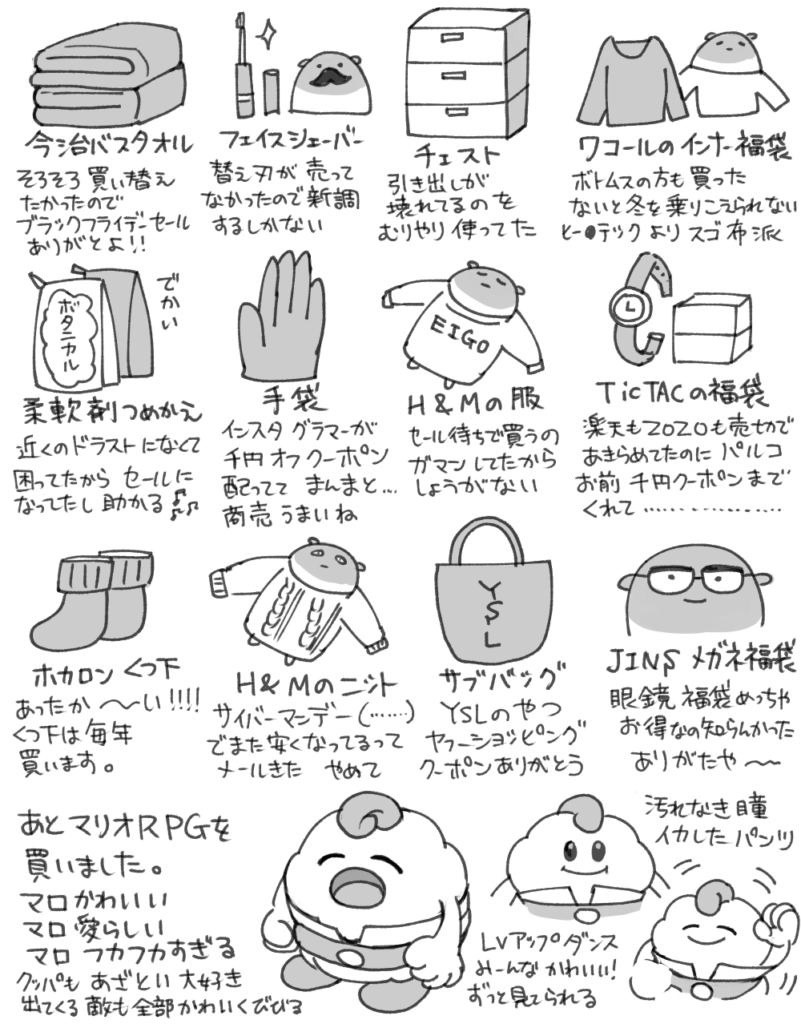 今治バスタオル
そろそろ買い替え
たかったので
ブラックフライデーセール
ありがとよ!!
フェイスシェーバー
替え刃が売って
なかったので新調
するしかない
チェスト
引き出しが
壊れてるのを
むりやり使ってた
ワコールのインナー福袋
ボトムスの方も買った
ないと冬を乗りこえられない
ヒー●テックよりスゴ布派
ボタニカル
でかい
柔軟剤つめかえ
近くのドラストになくて
困ってたからセールに
なってたし助かる♪♪
手袋
インスタグラマーが
千円オフクーポン
配ってて まんまと…
商売うまいね
EIGO
H&Mの服
セール待ちで買うの
ガマンしてたから
しょうがない
TicTACの福袋
楽天もZOZOも売切で
あきらめてたのにパルコ
お前千円クーポンまで
くれて………………
ホカロンくつ下
あったか〜〜い!!!!
くつ下は毎年
買います。
H&Mのニット
サイバーマンデー(……)
でまた安くなってるって
メールきた やめて
YSL
サブバッグ
YSLのやつ
ヤフーショッピング
クーポンありがとう
JINSメガネ福袋
眼鏡福袋めっちゃ
お得なの知らんかった
ありがたや〜〜
あとマリオRPGを
買いました。
マロかわいい
マロ愛らしい
マロフカフカすぎる
クッパもあざとい大好き
出てくる敵も全部かわいくびびる
LVアップダンス
みーんなかわいい!
ずっと見てられる
汚れなき瞳
イカしたパンツ